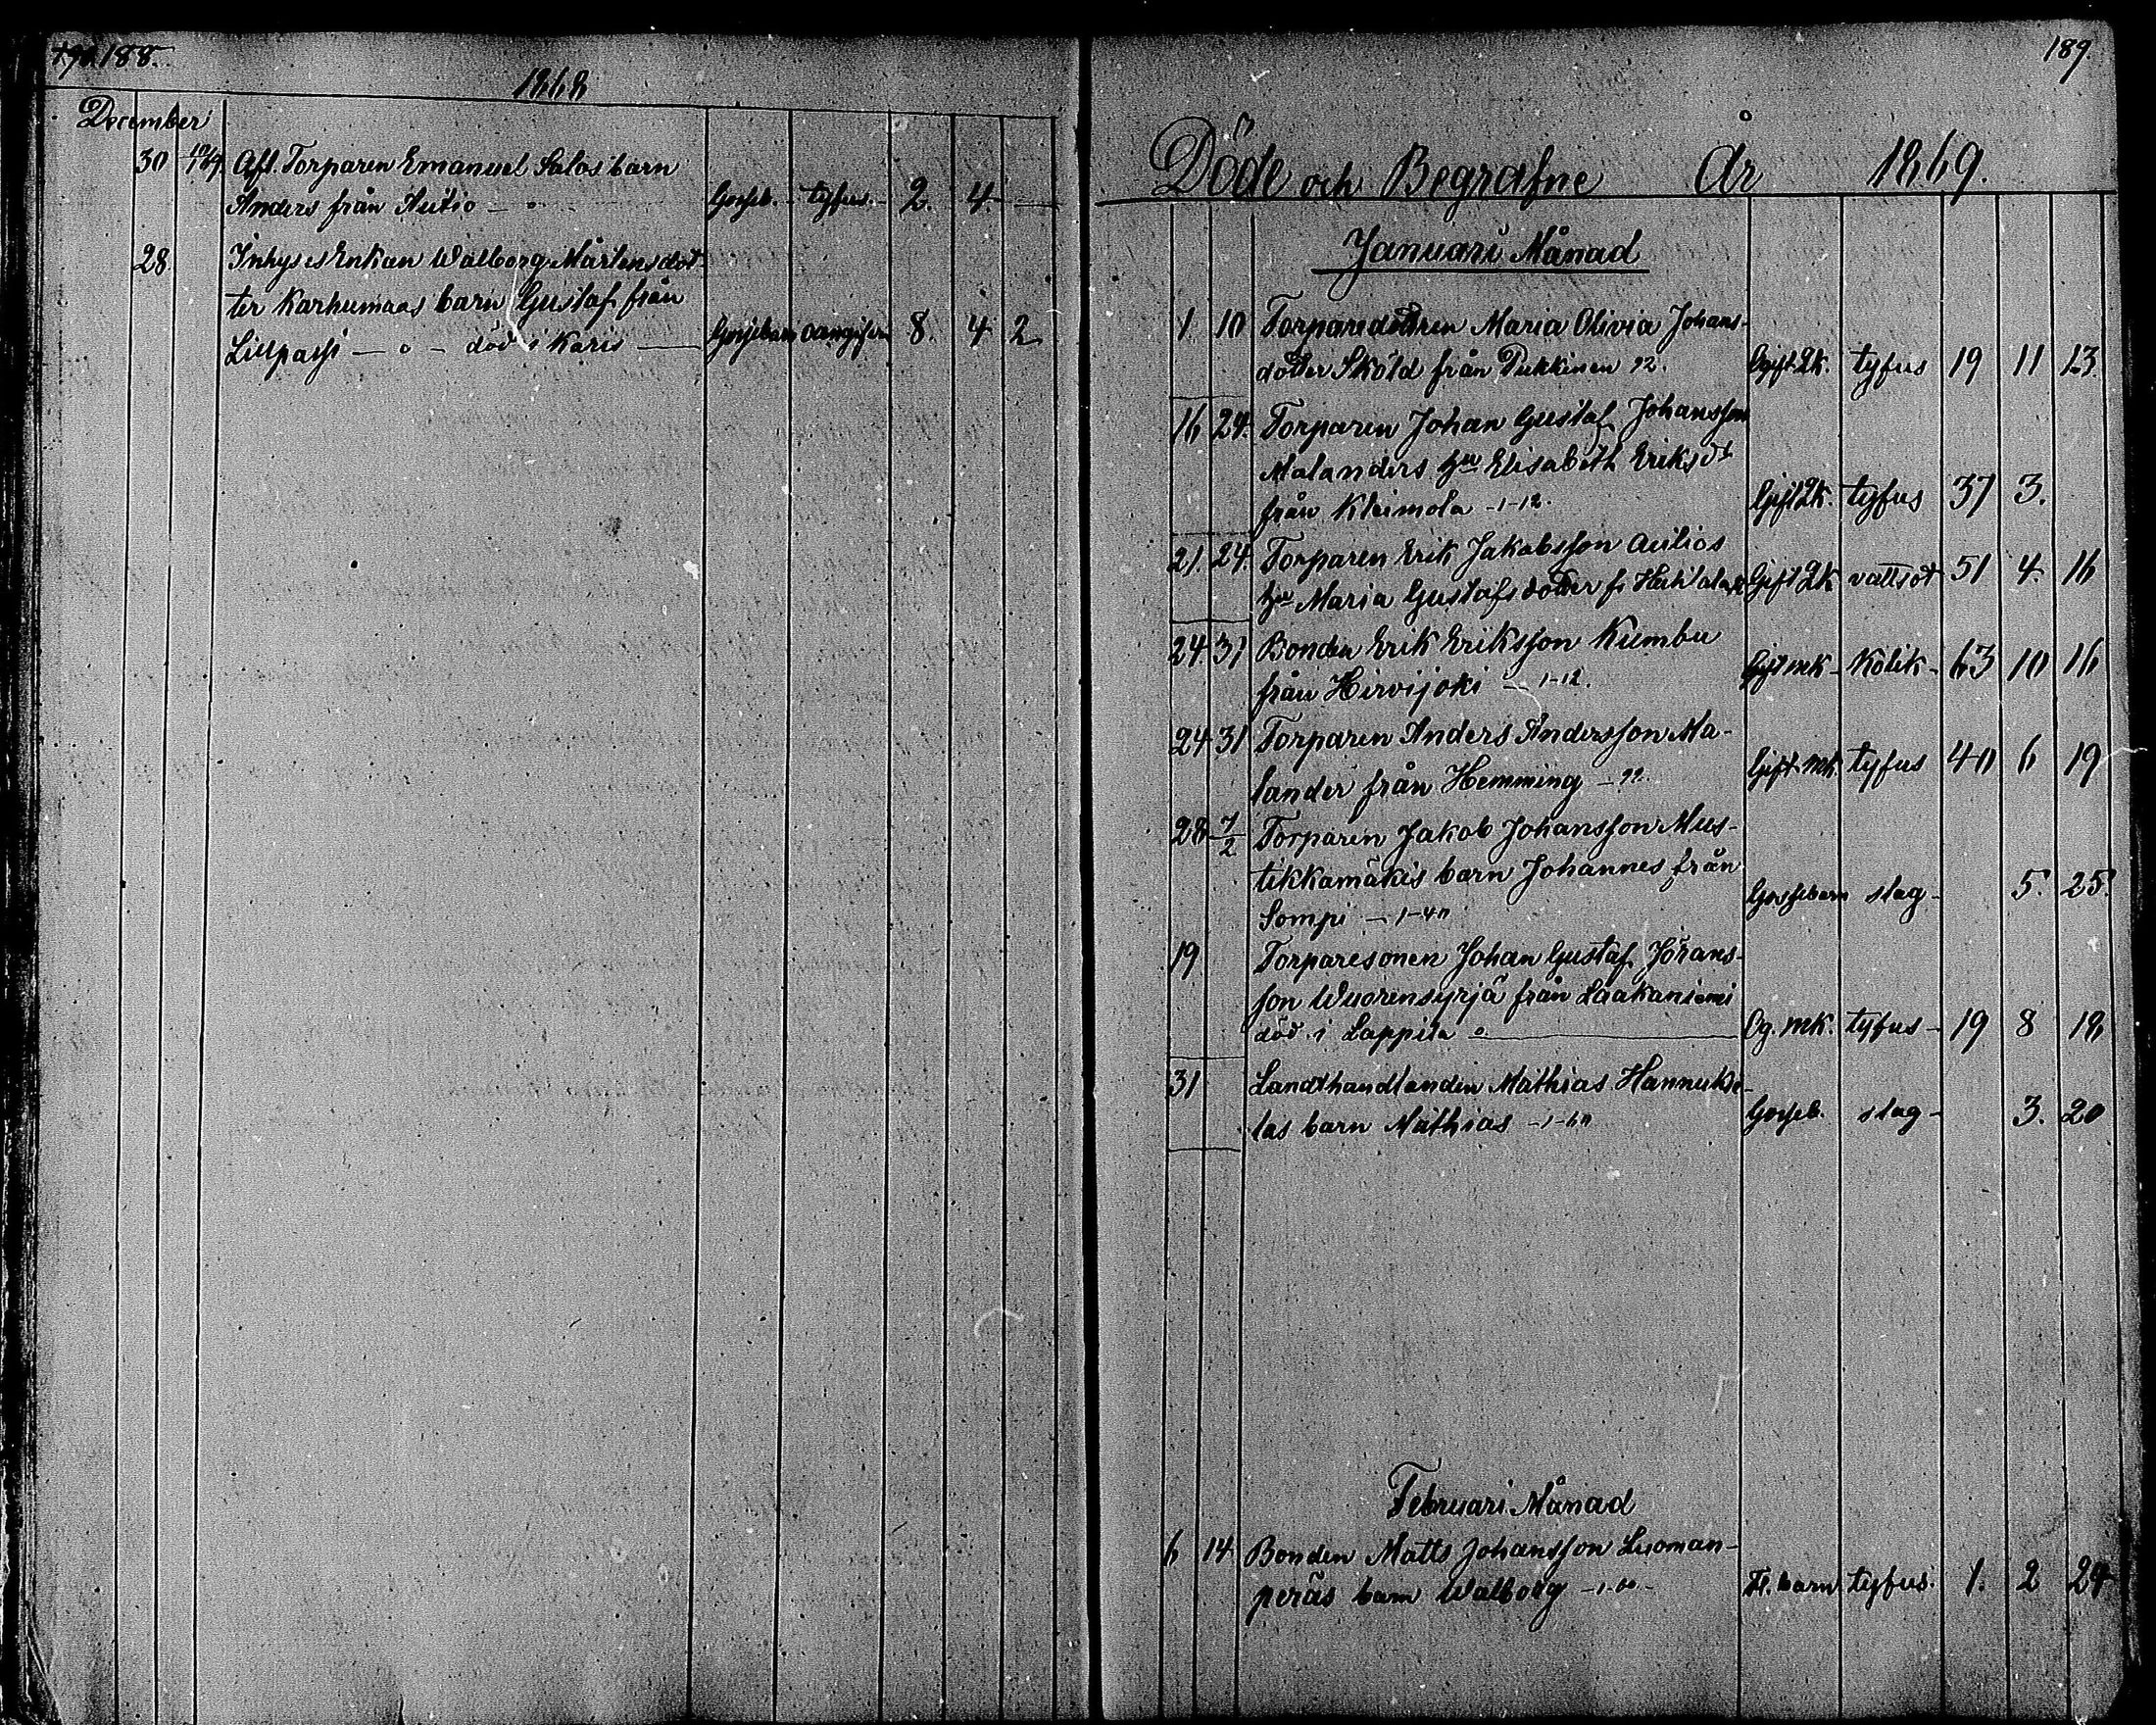 188.
1868
December
30 Afl. Torparen Emanuel Salos barn
Anders från Autio — o — Gosseb. — tyfus. — 2. 4. —
28. Inhyses Enkan Walborg Mårtensdot-
ter Karhumaas barn Gustaf från
Lillpassi — o — död i Karis — Gossebarn 8. 4 2
189.
Döde och Begrafne År 1869.
Januari Månad
1. 10 Torparedottren Maria Olivia Johans-
dotter Sköld från Pukkinen 92. Ogift Qk. tyfus 19 11 13.
16 24. Torparen Johan Gustaf Johansson
Malanders hu Elisabeth Eriksdr
från Kleimola -1-12. Gift Qk. tyfus 37 3.
21. 24. Torparen Erik Jakobsson Autios
hu Maria Gustafsdotter fr Gift Qk vattsot 51 4. 16
24 31 Bonden Erik Eriksson Kumbu
från Hirvijoki — 1-12. Gift mk - Kolik - 63 10 16
24 31 Torparen Anders Andersson Ma-
lander från Hemming — 92. Gift. mk. tyfus 40 6 19
28 7/2 Torparen Jakob Johansson Mus-
tikkamäkis barn Johannes från
Sompi — 1-40 Gossebarn slag - 5. 25.
19 Torparesonen Johan Gustaf Jörans-
son Wuorensyrjä från Laakaniemi
död i Lappila o — Og. mk. tyfus - 19 8 18
31 Landthandlanden Mathias Hannuks-
las barn Mathias -1-60 Gosseb. slag - 3. 20
Februari Månad
6 14 Bonden Matts Johansson Luoman-
peräs barn Walborg -1-60- Fl. barn tyfus. 1. 2 24